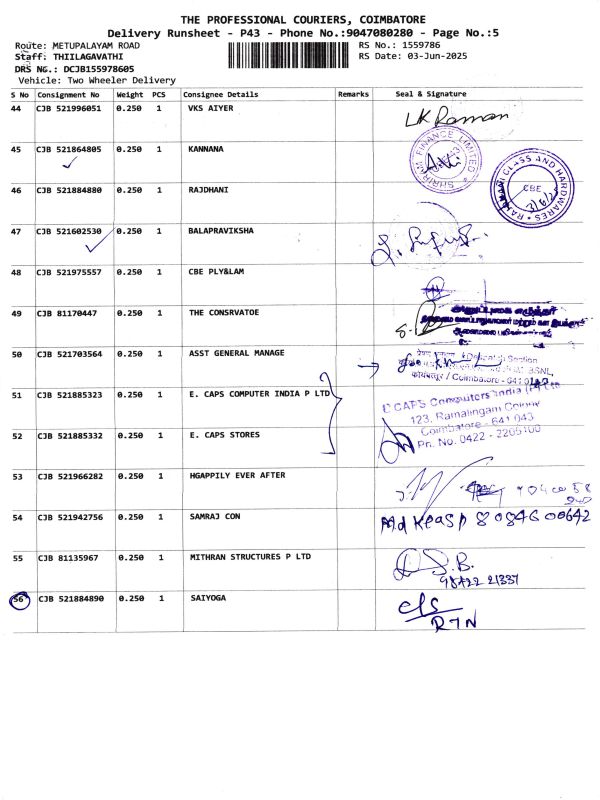 THE PROFESSIONAL COURIERS, COIMBATORE
Delivery Runsheet - P43 - Phone No.:9047080280 - Page No.:5
Route: METUPALAYAM ROAD RS No.: 1559786
Staff: THIILAGAVATHI RS Date: 03-Jun-2025
DRS No.: DCJB155978605
Vehicle: Two Wheeler Delivery
S No Consignment No Weight PCS Consignee Details Remarks Seal & Signature
44 CJB 521996051 0.250 1 VKS AIYER LK Raman
45 CJB 521864805 0.250 1 KANNANA
SHRIRAM FINANCE LIMITED
46 CJB 521884880 0.250 1 RAJDHANI
GLASS AND HARDWARES
CBE
47 CJB 521602530 0.250 1 BALAPRAVIKSHA
48 CJB 521975557 0.250 1 CBE PLY&LAM
49 CJB 81170447 0.250 1 THE CONSRVATOE
50 CJB 521703564 0.250 1 ASST GENERAL MANAGE
Despatch Section
BSNL,
/ Coimbatore - 641
51 CJB 521885323 0.250 1 E. CAPS COMPUTER INDIA P LTD
CAPS Computers India
123, Ramalingam Colony
52 CJB 521885332 0.250 1 E. CAPS STORES
Coimbatore - 641 043
Ph. No. 0422 - 2205100
53 CJB 521966282 0.250 1 HGAPPILY EVER AFTER
54 CJB 521942756 0.250 1 SAMRAJ CON
55 CJB 81135967 0.250 1 MITHRAN STRUCTURES P LTD
98422 21331
56 CJB 521884890 0.250 1 SAIYOGA
C/S
RTN